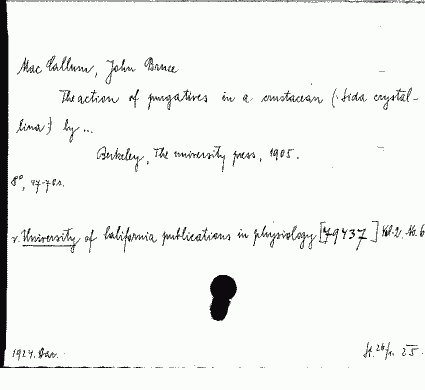 Mac Callum, John Bruce
The action of purgatives in a crustacean (Sida crystal-
lina) by ...
Berkeley, The university press, 1905.
8°, 47-70 s.
v. University of California publications in physiology [79437] Vol. 2. No. 6
1924.